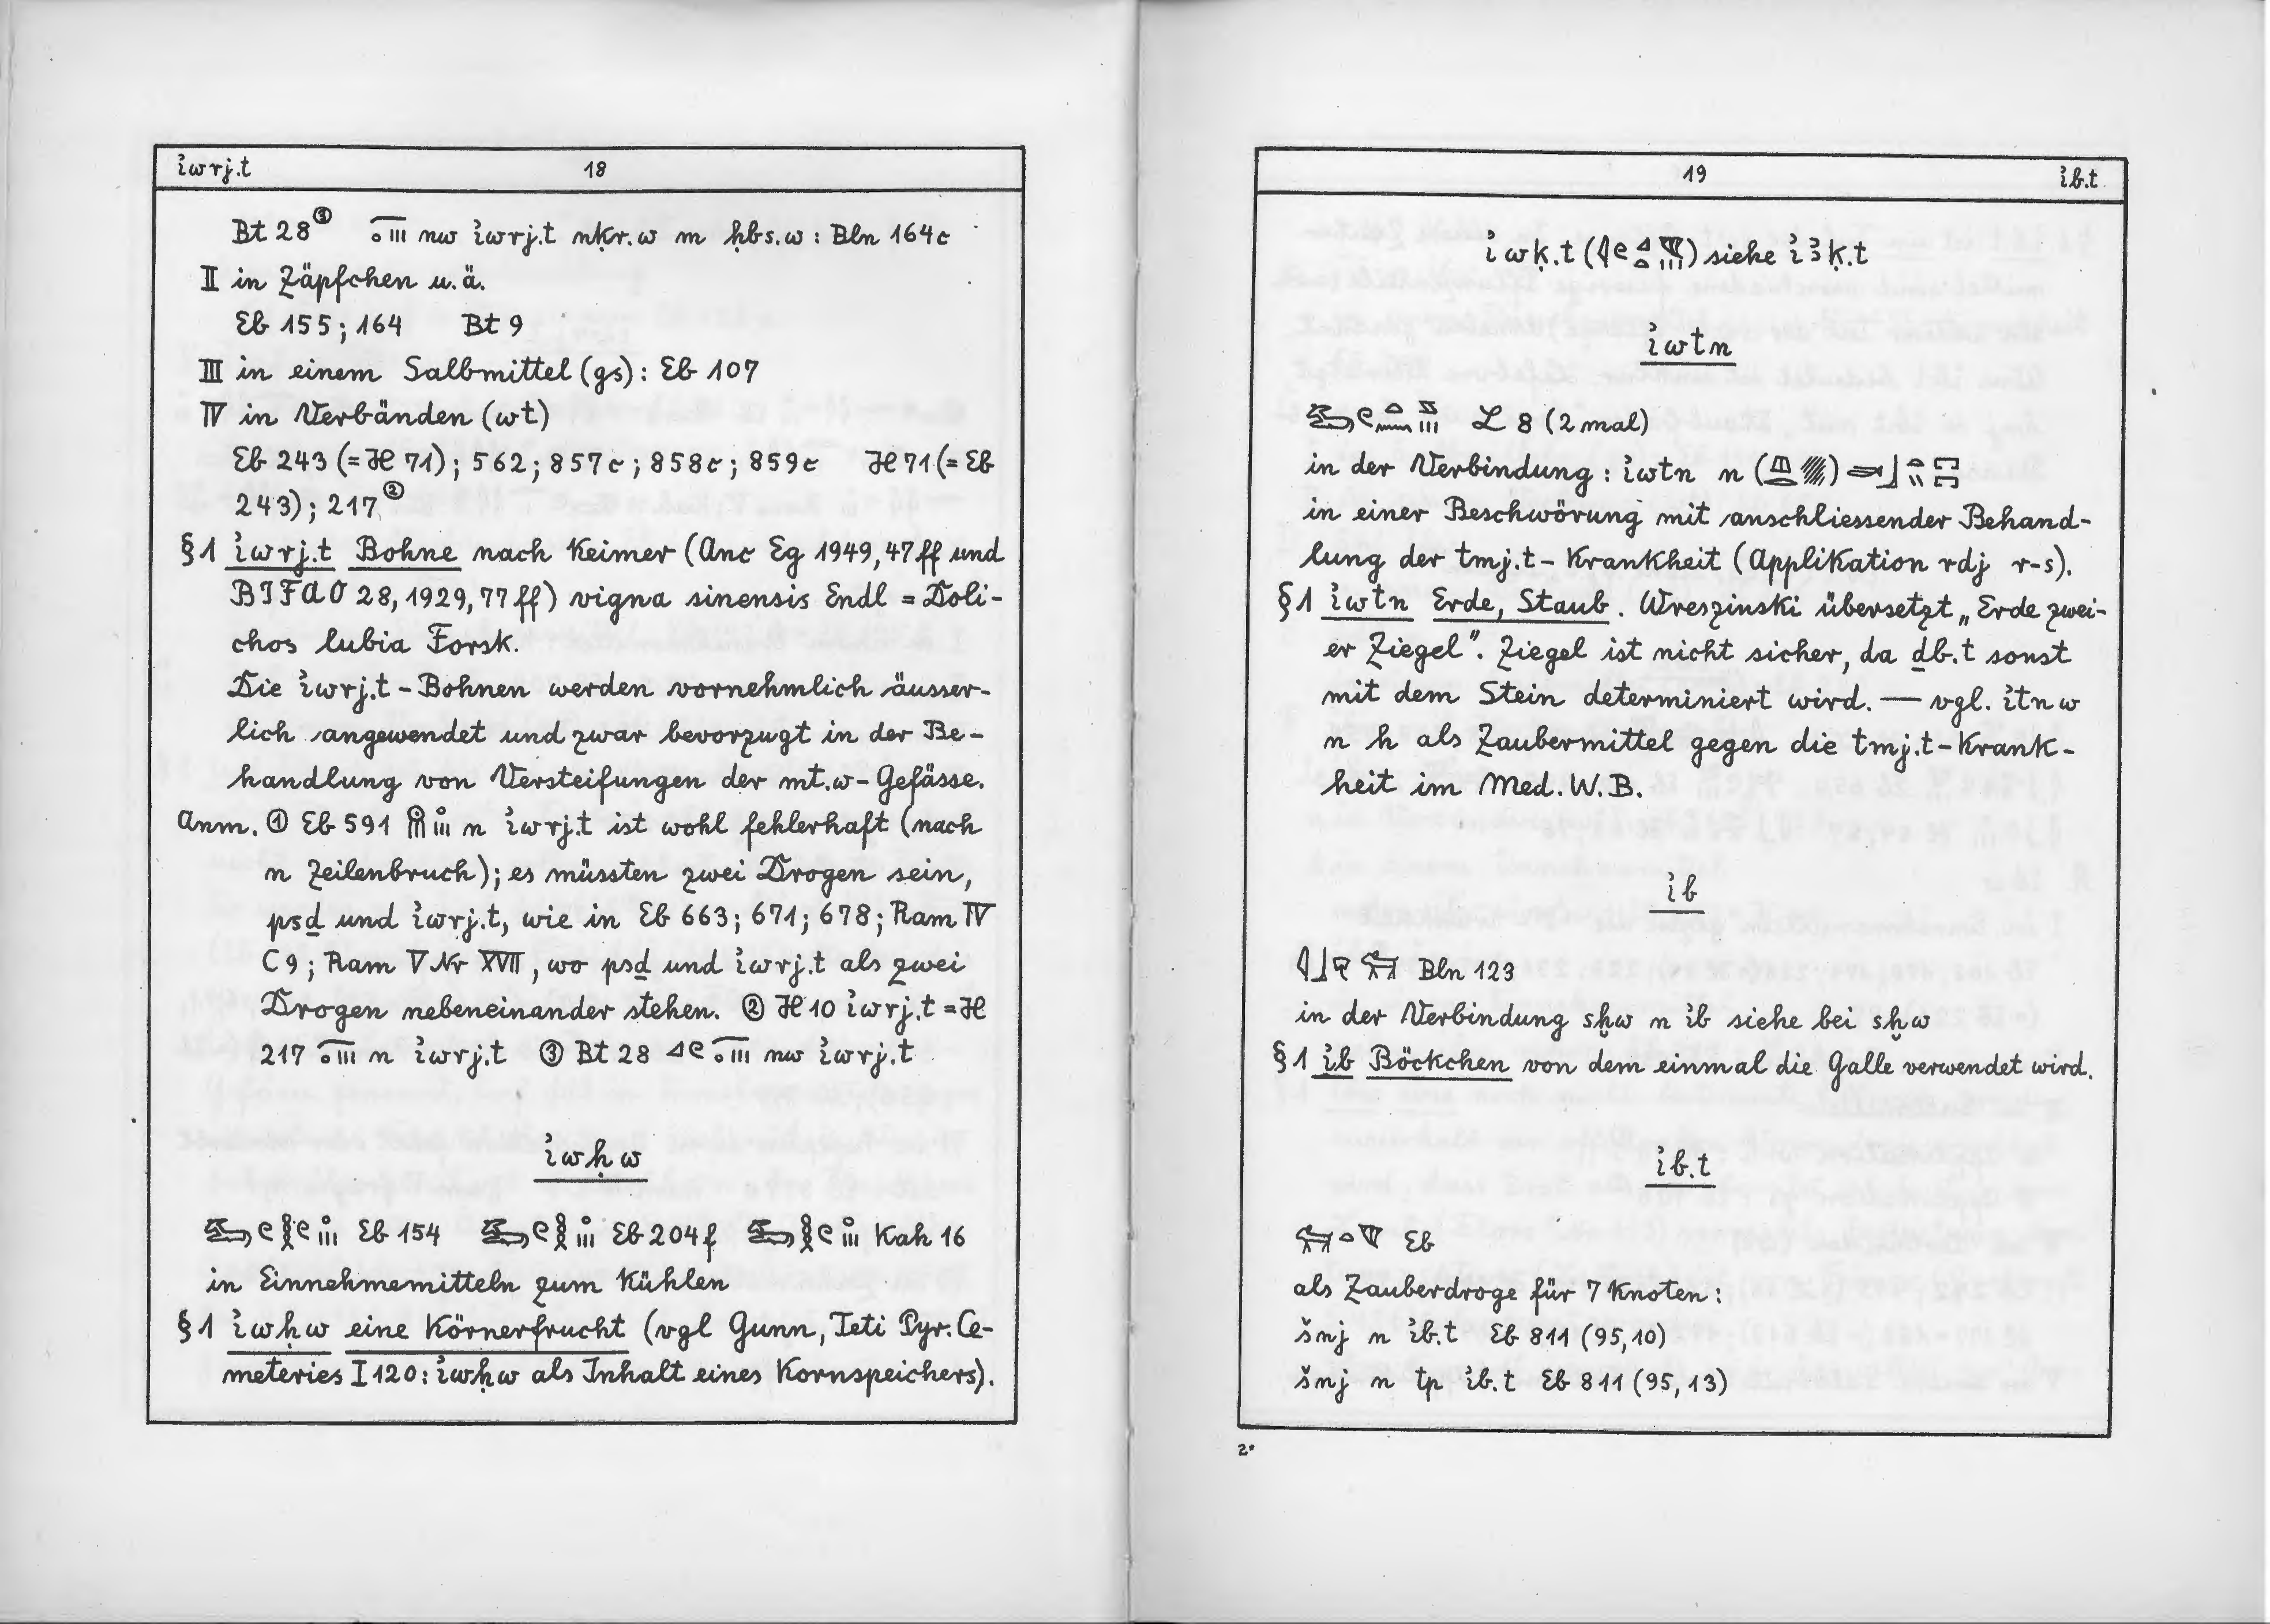 i҆wrj.t 18
Bt 28③ nw i҆wrj.t nḳr.w m ḥbs.w : Bln 164c
II in Zäpfchen u.ä.
Eb 155; 164 Bt 9
III in einem Salbmittel (gs): Eb 107
IV in Verbänden (wt)
Eb 243 (= H 71); 562; 857c; 858c; 859c H 71 (= Eb
243); 217②
§1 i҆wrj.t Bohne nach Keimer (Anc Eg 1949, 47ff und
BIFAO 28, 1929, 77ff) vigna sinensis Endl = Doli-
chos lubia Forsk.
Die i҆wrj.t-Bohnen werden vornehmlich äusser-
lich angewendet und zwar bevorzugt in der Be-
handlung von Versteifungen der mt.w-Gefässe.
Anm. ① Eb 591 n i҆wrj.t ist wohl fehlerhaft (nach
n Zeilenbruch); es müssten zwei Drogen sein,
psḏ und i҆wrj.t, wie in Eb 663; 671; 678; Ram IV
C 9; Ram V Nr XVII, wo psḏ und i҆wrj.t als zwei
Drogen nebeneinander stehen. ② H 10 i҆wrj.t = H
217 n i҆wrj.t ③ Bt 28 nw i҆wrj.t
i҆wḥw
Eb 154 Eb 204f Kah 16
in Einnehmemitteln zum Kühlen
§1 i҆wḥw eine Körnerfrucht (vgl Gunn, Teti Pyr. Ce-
meteries I 120: i҆wḥw als Inhalt eines Kornspeichers).
19 i҆b.t
i҆wḳ.t ( ) siehe i҆ꜣḳ.t
i҆wtn
L 8 (2 mal)
in der Verbindung: i҆wtn n ( )
in einer Beschwörung mit anschliessender Behand-
lung der tmj.t-Krankheit (Applikation rdj r-s).
§1 i҆wtn Erde, Staub. Wreszinski übersetzt „Erde zwei-
er Ziegel". Ziegel ist nicht sicher, da ḏb.t sonst
mit dem Stein determiniert wird. — vgl. i҆tnw
n h als Zaubermittel gegen die tmj.t-Krank-
heit im Med. W. B.
i҆b
Bln 123
in der Verbindung sḫw n i҆b siehe bei sḫw
§1 i҆b Böckchen von dem einmal die Galle verwendet wird.
i҆b.t
Eb
als Zauberdroge für 7 Knoten:
šnj n i҆b.t Eb 811 (95,10)
šnj n tp i҆b.t Eb 811 (95,13)
2*